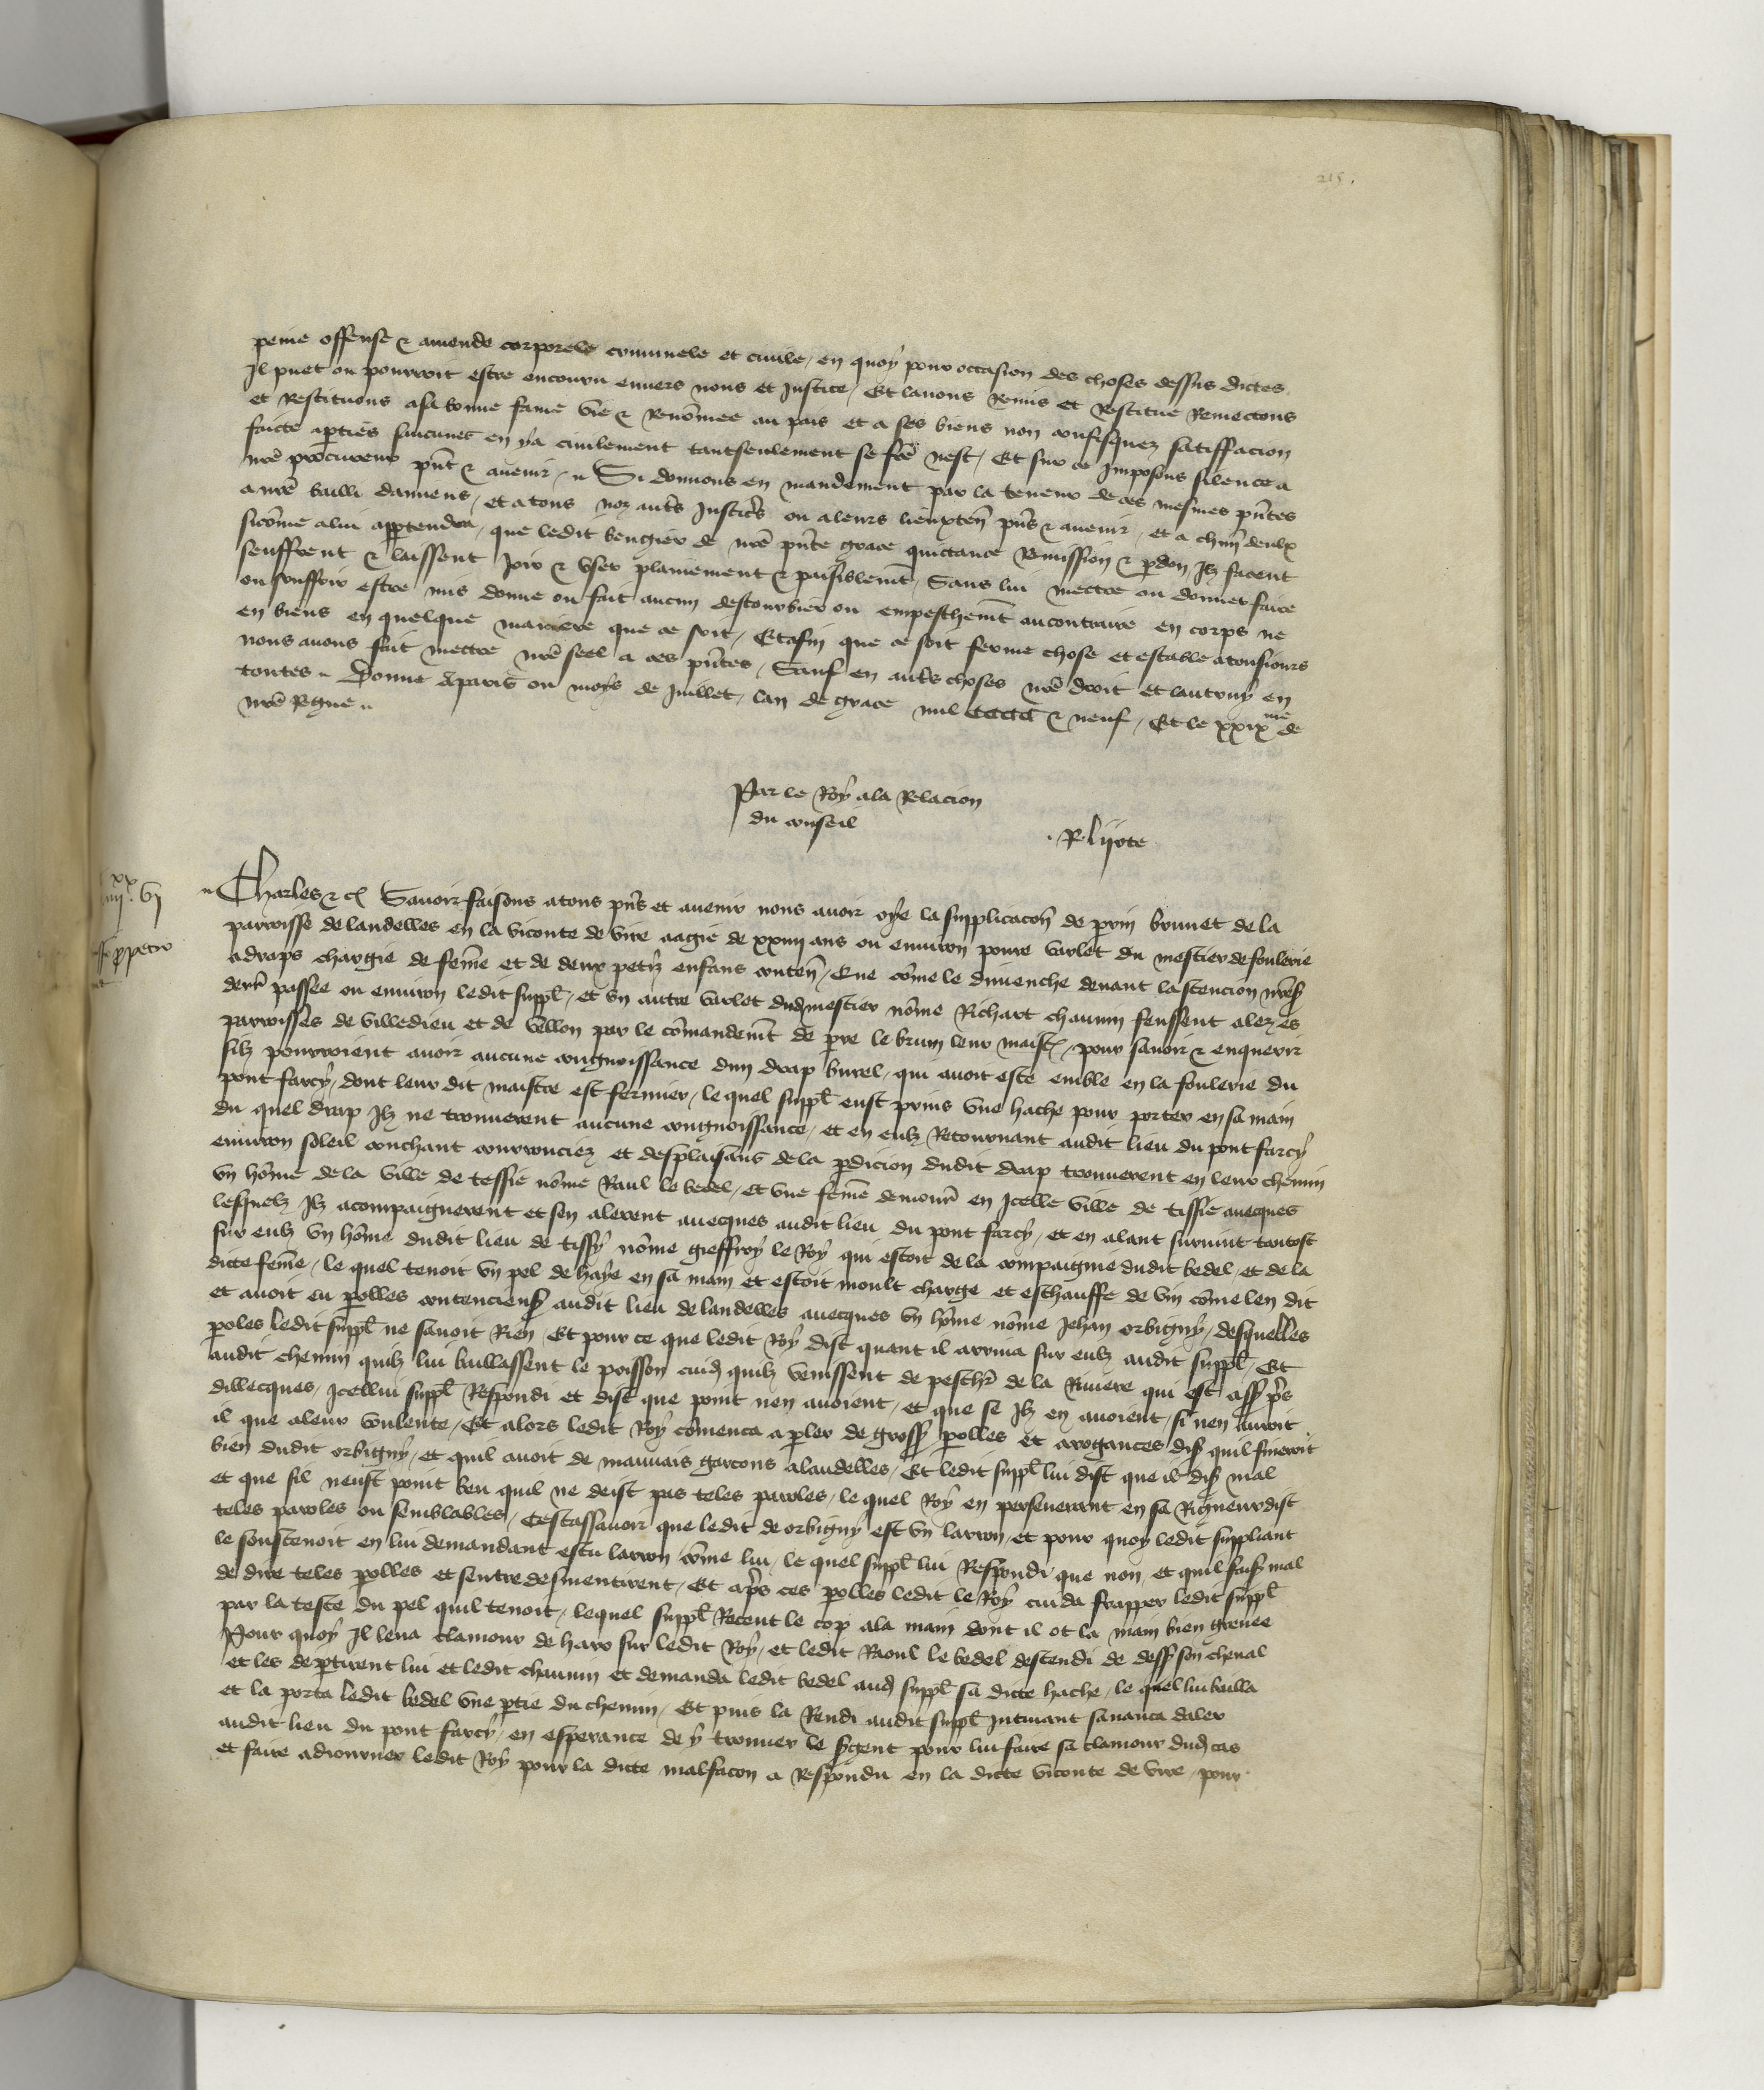 215.
peine offense & amende corporele criminele et civile, en quoy pour occasion des choses dessus dictes
Il puet ou pourroit estre encouru envers nous et Justice, Et lavons Remis et Restitue Remectons
et Restituons asa bonne fame vie & Renõmee au pais et a ses biens non confisquez satisfacion
faicte aptiẽs saucunes en ya civilement tantseulement se frẽ nest, Et sur ce Imposons silence a
nr̃e procureur pñt & avenir, Si donnons en mandement par la teneur de ces mesmes pñtes
a nr̃e bailli damiens, et a tous noz autˢ Justicˢ ou aleurs lieuxteñ pñs & avenir, et a chũn deulx
sicõme alui appartendra, que ledit bengier de nr̃e pñte grace quictance Remission & pdon Ilz facent
seuffrent & laissent Joir & user plainement & paisiblemẽt, Sans lui mectre ou donner faire
ou souffrir estre mis donne ou fait aucun destourbier ou empeschemẽt aucontraire en corps ne
en biens en quelque maniere que ce soit, Et afin que ce soit ferme chose et estable atousiours
nous avons fait mectre nr̃e seel a ces pñtes, Sauf en autˢ choses nr̃e droit et lautruy en
toutes. Donne aparis ou moys de Juillet, lan de grace mil CCCC & neuf, Et le xxixᵐᵉ de
nr̃e Regne
Par le Roy ala Relacion
du conseil
R. lijote
iiijˣˣ. vj
Charles & cͭ Savoir faisons atous pñs et avenir nous avoir oye la supplicacoñ de prin brunet de la
parroisse de landelles en la viconte de vire aagie de xxiiij ans ou environ povre varlet du mestier de foulerie
adraps chargie de fem̃e et de deux petiz enfans conteñ, Que cõme le dimenche devant lascencion nrẽs
derr̃ passee ou environ ledit suppl̃, et un autre varlet dud mestier nõme Richart chauvin feussent alez es
parroisses de villedieu et de vellon par le cõmandemẽt de pre le brun leur maistˢ, pour savoir & enquerir
silz pourroient avoir aucune congnoissance dun drap burel, qui avoit este emble en la foulerie du
pont farcy, dont leur dit maistre est fermier, le quel suppl̃ eust prins une hache pour porter en sa main
du quel drap Ilz ne trouverent aucune congnoissance, et en eulz Retournant audit lieu du pont farcy
environ soleil couchant courrouciez et desplaisans de la pdicion dudit drap trouverent en leur chemin
un hõme de la ville de tessie nõme Raul le bedel, et une fem̃e demour̃ en Icelle ville de tissie avecques
lesquelz Ilz acompaignerent et sen alerent avecques audit lieu du pont farcy, et en alant survint tantost
sur eulz un hõme dudit lieu de tissy nõme gieffroy le Roy qui estoit de la compaignie dudit bedel, et de la
dicte fem̃e, le quel tenoit un pel de haye en sa main et estoit moult charge et eschauffe de vin cõme len dit
et avoit eu polles contencieuˢ audit lieu de landelles avecques un hõme nõme Jehan orbigny, desquelles
poles ledit suppl̃ ne savoit Rien, Et pour ce que ledit Roy dist quant il arriva sur eulz audit suppl̃, Et
audit chemin quilz lui baillassent le poisson cuid quilz venissent de pescher de la Riviere qui est assˢ prˢ
dillecques, Icellui suppl̃ Respondi et dist que point nen avoient, et que se Ilz en avoient, si nen auroit
il que aleur voulente, Et alors ledit Roy cõmenca a pler de grossˢ polles et arrogances disˢ quil fineroit
bien dudit orbigny, et quil avoit de mauvais garcons alandelles, Et ledit suppl̃ lui dist que il disˢ mal
et que sil neust point beu quil ne deist pas teles paroles, le quel Roy en perseverant en sa Rigueur dist
teles paroles ou semblables, Cestassavoir que ledit de orbigny est un larron, et pour quoy ledit suppliant
le soustenoit en lui demandant estu larron cõme lui, le quel suppl̃ lui Respondi que non, et quil faisˢ mal
de dire teles polles et sentre desmentirent, Et aprˢ ces polles ledit le Roy cuida frapper ledit suppl̃
par la teste du pel quil tenoit, lequel suppl̃ Receut le cop ala main dont il ot la main bien grevee
Pour quoy Il leva clamour de haro sur ledit Roy, et ledit Raoul le bedel descendi de dessˢ son cheval
et les deptirent lui et ledit chauvin et demanda ledit bedel aud suppl̃ sa dicte hache, le quel lui bailla
et la porta ledit bedel une ptie du chemin, Et puis la Rendi audit suppl̃ Intinant savanca daler
audit lieu du pont farcy, en esperance de y trouver le sgent pour lui faire sa clamour dud cas
et faire adiourner ledit Roy pour la dicte malfacon a Respondu en la dicte viconte de vire, pour